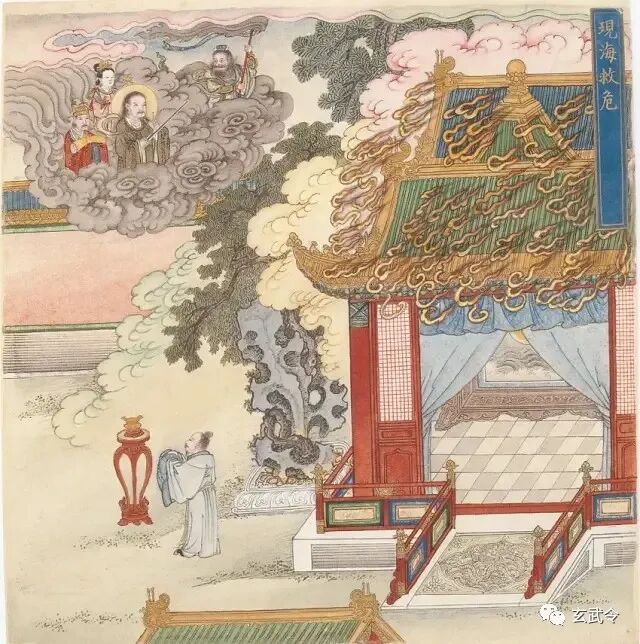 現海救危
玄武令